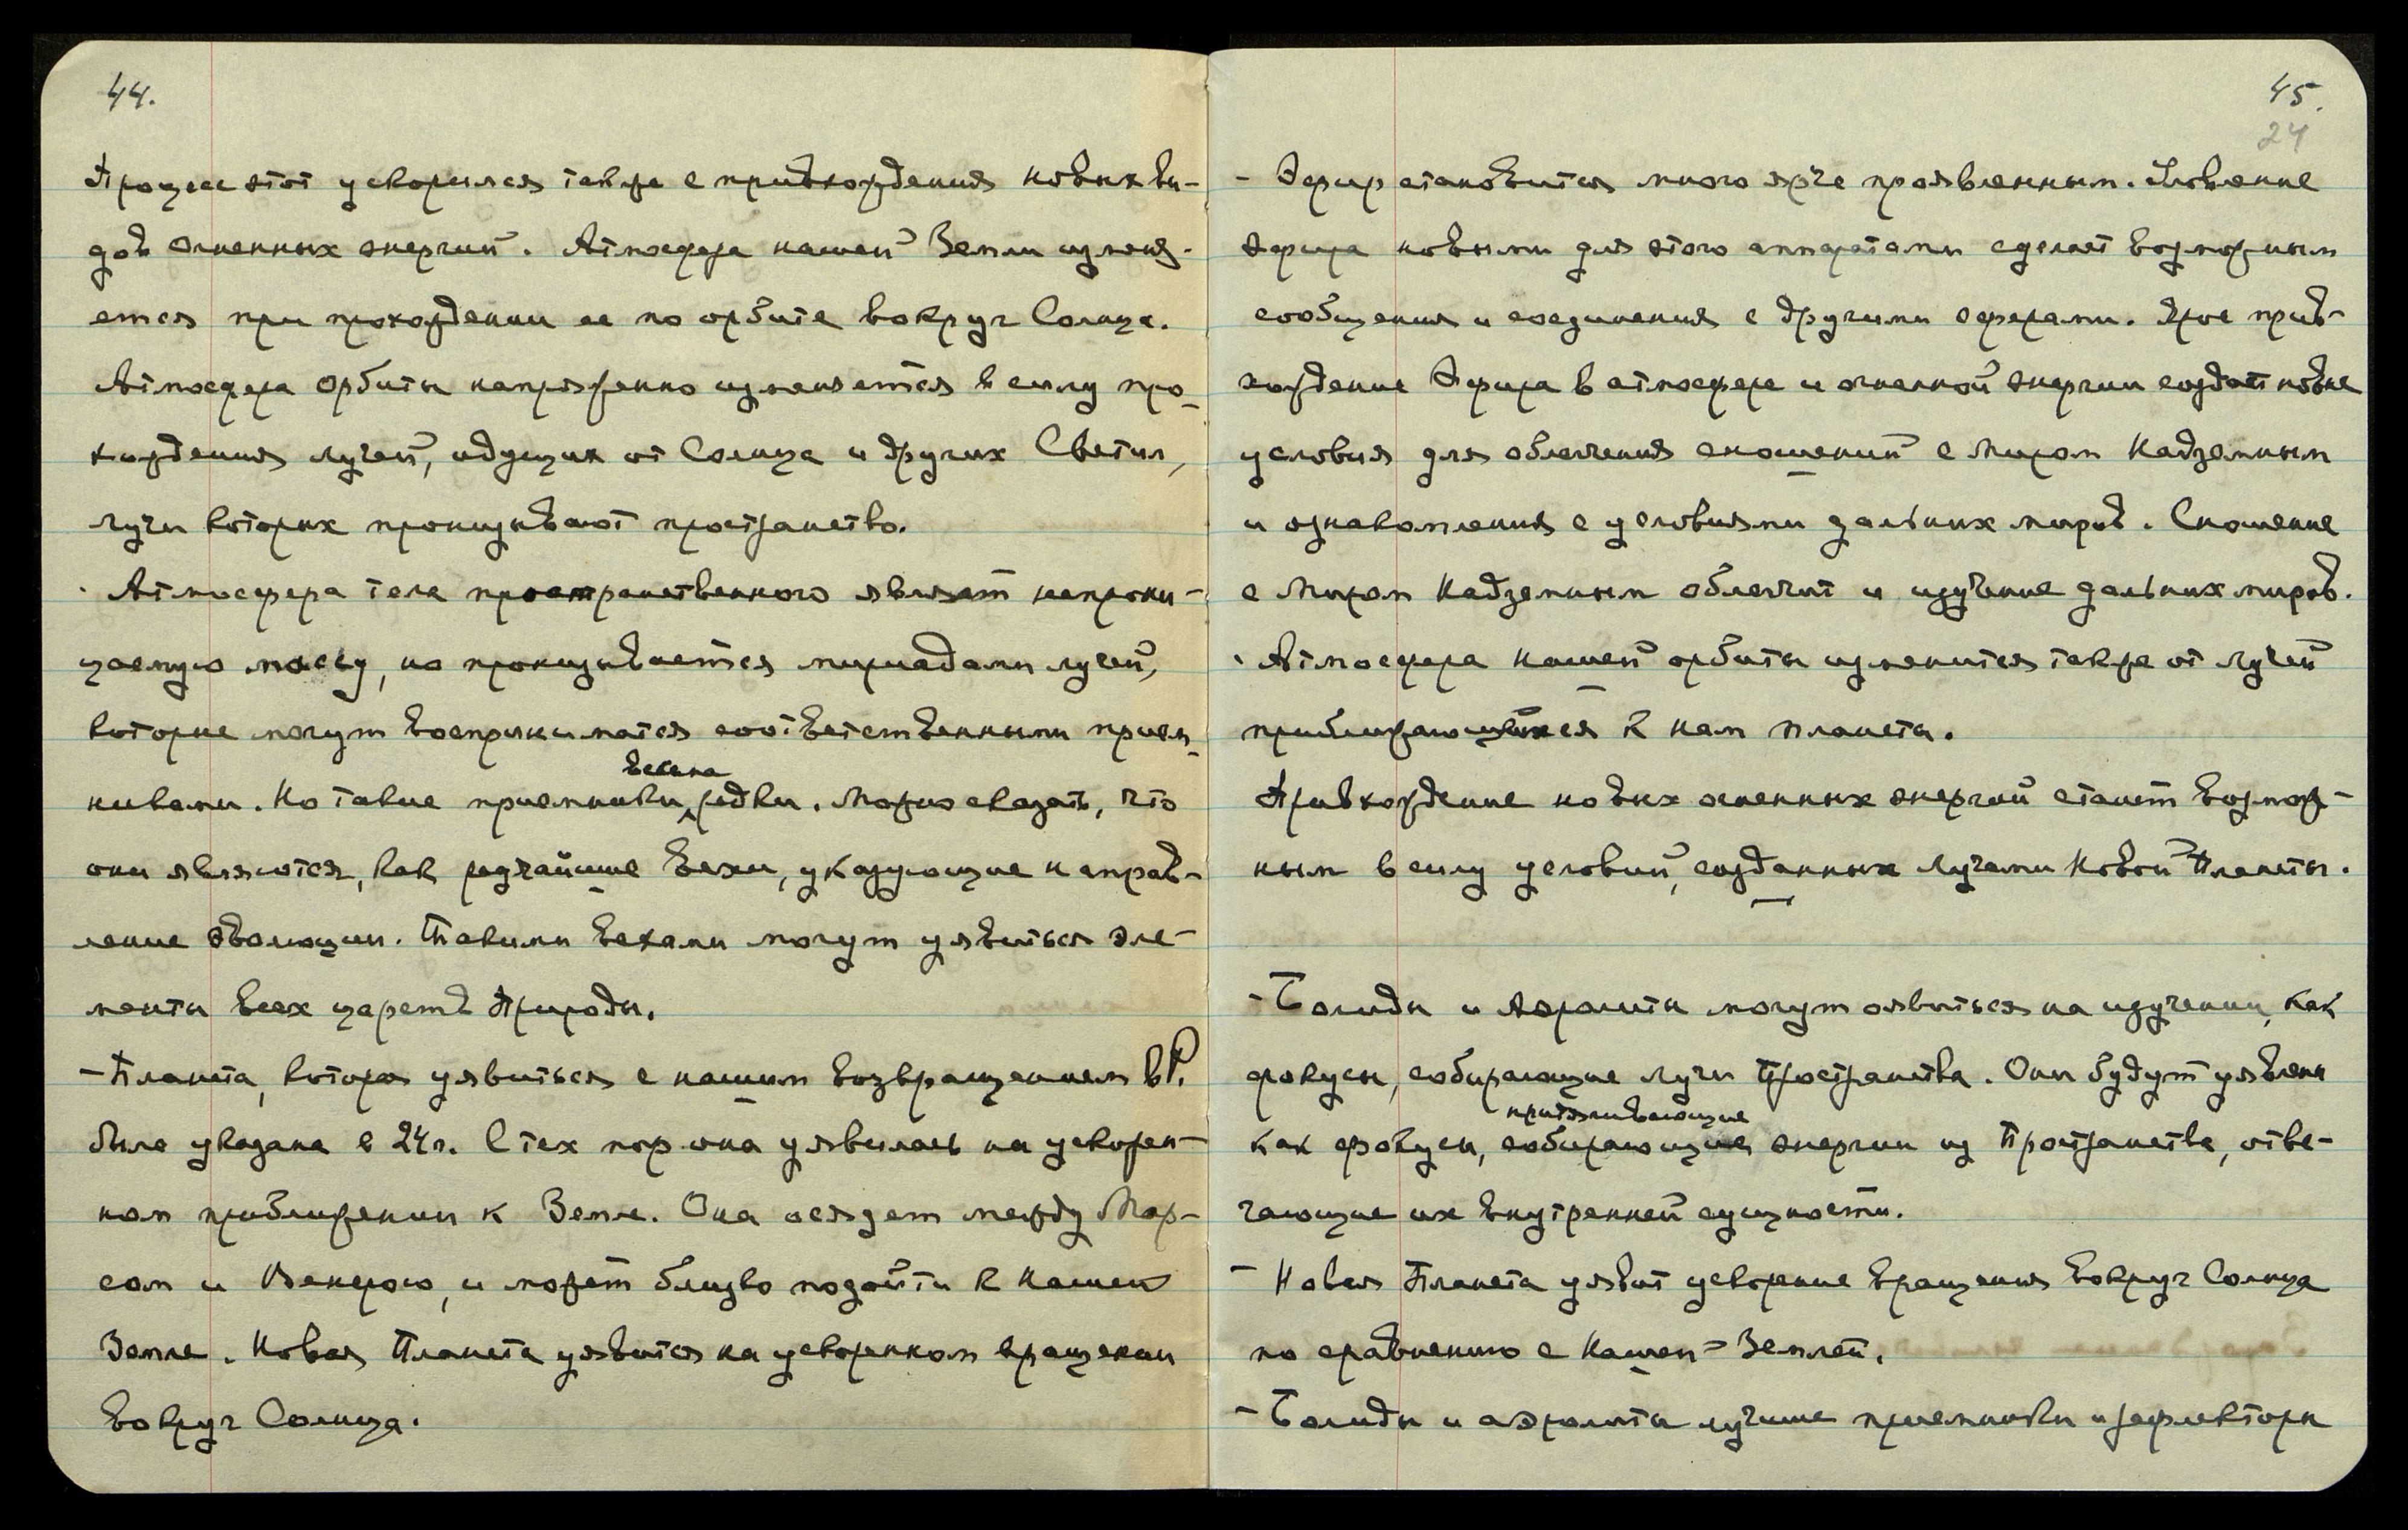 44.
Процесс этот ускорился также с привхождения новых ви-
дов огненных энергий. Атмосфера нашей Земли изменя-
ется при прохождении ее по орбите вокруг Солнца.
Атмосфера орбиты напряженно изменяется в силу про-
хождения лучей, идущих от Солнца и других Светил,
лучи которых пронизывают пространство.
Атмосфера тела пространственного являет непрони-
цаемую массу, но пронизывается мириадами лучей,
которые могут восприниматся соответственными прием-
никами. Но такие приемники весьма редки. Можно сказать, что
они являются, как редчайшие вехи, указующие направ-
ление эволюции. Такими вехами могут уявиться эле-
менты всех царств Природы.
- Планета, котора уявиться с нашим возвращением в Р.
была указана в 24 г. С тех пор она уявилась на ускорен-
ном приближении к Земле. Она осядет между Мар-
сом и Венерою, и может близко подойти к нашей
Земле. Новая Планета уявится на ускоренном вращении
вокруг Солнца.
45.
24
- Эфир становится много ярче проявленным. Уловление
эфира новыми для этого аппаратами сделает возможным
сообщения и соединения с другими сферами. Ярое прив-
хождение Эфира в атмосфере и огненной энергии создаст новые
условия для облегчения сношений с Миром Надземным
и ознакомления с условиями дальних миров. Сношение
с Миром Надземным облегчит и изучение дальних миров.
Атмосфера нашей орбиты изменится также от лучей
приближающейся к нам планеты.
Привхождение новых огненных энергий станет возмож-
ным в силу условий, созданных лучами Новой Планеты.
- Болиды и Аэролиты могут оявиться на изучении, как
фокусы, собирающие лучи Пространства. Они будут уявлены
притягивающие
как фокусы, собирающие энергии из Пространства, отве-
чающие их внутренней сущности.
- Новая Планета уявит ускорение вращения вокруг Солнца
по сравнению с Нашей Землей.
- Болиды и аэролиты лучшие приемники и рефлекторы